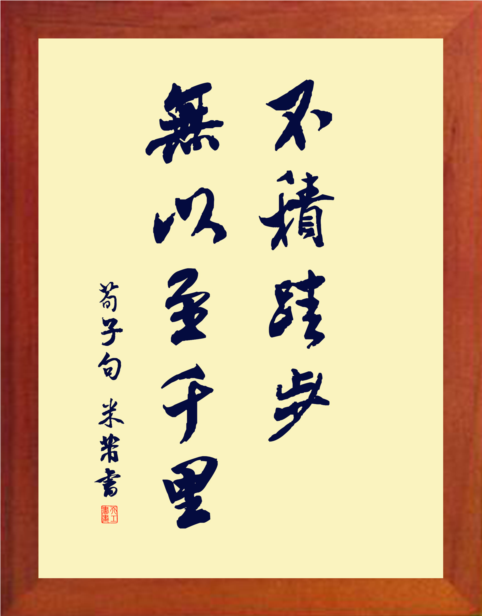 不積跬步
無以至千里
荀子句 米芾書